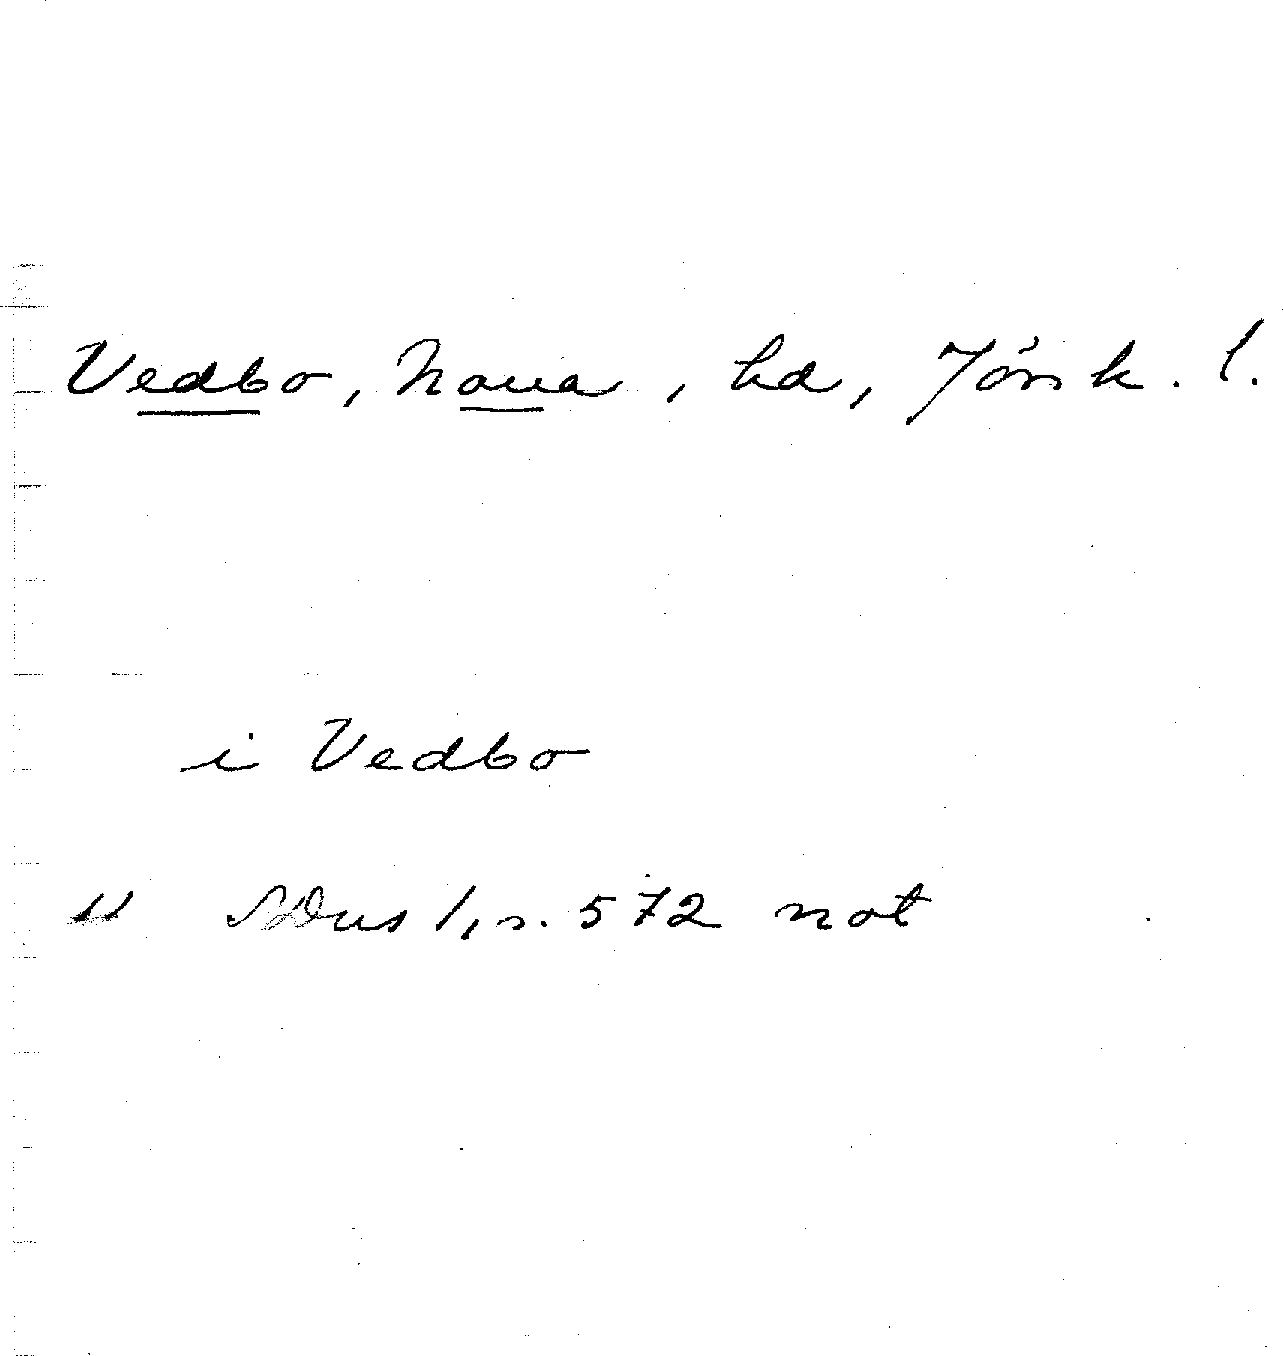 Vedbo, Norra, hd, Jönk. l.
i Vedbo
SDns 1, s. 572 not